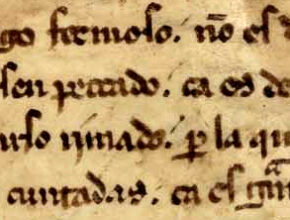 go fermoso. nō es d
sen peccado. ca es de
urso rimado. ꝑ la qu
cuntadas. ca es gᵃn